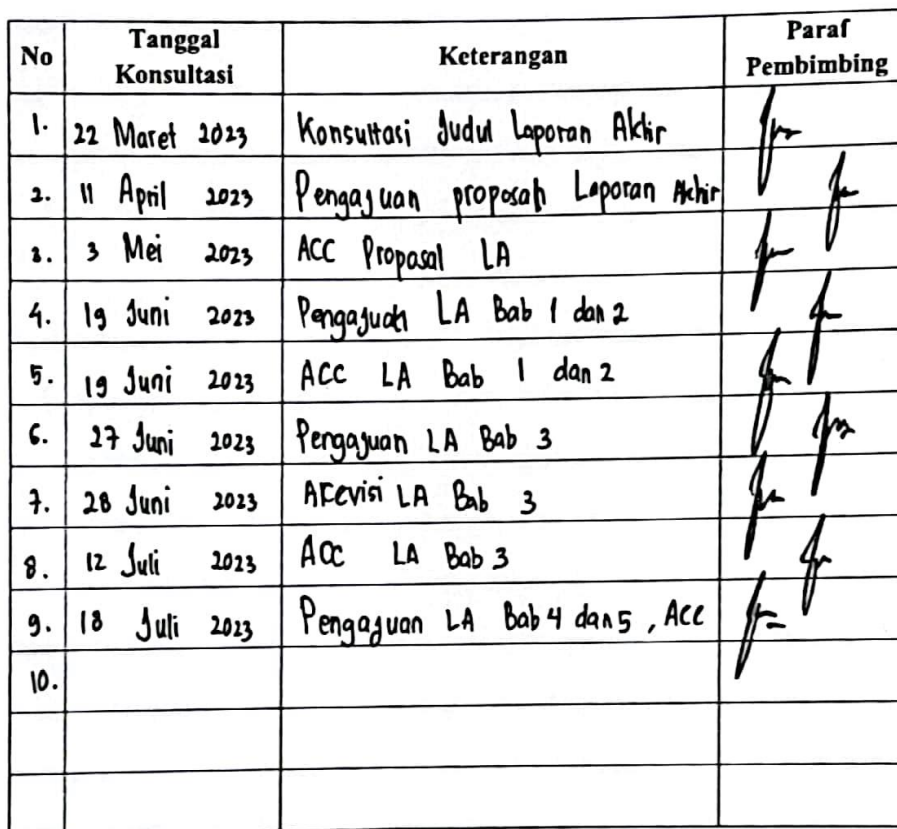 No Tanggal Konsultasi Keterangan Paraf Pembimbing
1. 22 Maret 2023 Konsultasi Judul Laporan Akhir
2. 11 April 2023 Pengajuan proposal Laporan Akhir
3. 3 Mei 2023 ACC Proposal LA
4. 19 Juni 2023 Pengajuan LA Bab 1 dan 2
5. 19 Juni 2023 ACC LA Bab 1 dan 2
6. 27 Juni 2023 Pengajuan LA Bab 3
7. 28 Juni 2023 LA Bab 3
8. 12 Juli 2023 ACC LA Bab 3
9. 18 Juli 2023 Pengajuan LA Bab 4 dan 5, ACC
10.